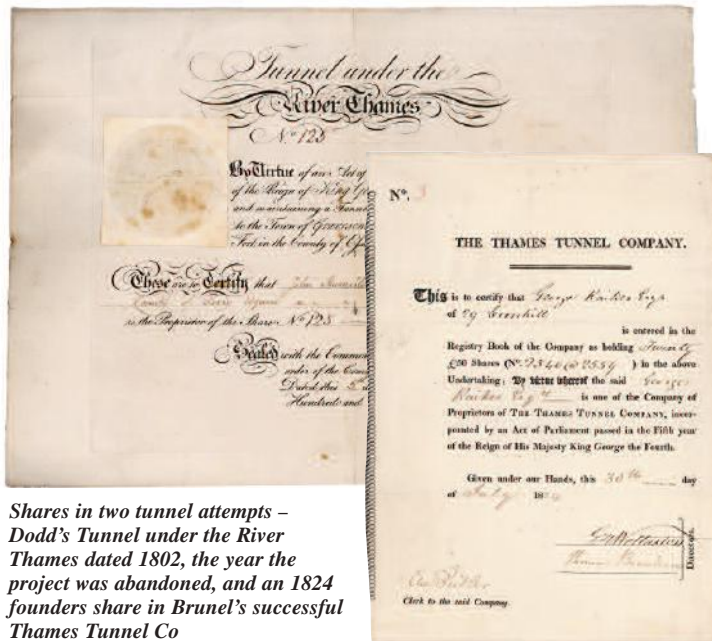 Tunnel under the
River Thames
No 125
By Virtue of an Act of
of the Reign of King Ge
and maintaining a Tunnel
to the Town of Gravesend
Fort in the County of Ess
These are to Certify that John
is the Proprietor of the Share No 125
Sealed with the Common
under of the Com
Dated this 5th
Hundred and
No. 3
THE THAMES TUNNEL COMPANY.
This is to certify that George Raikes Esqr
of 29 Cornhill
is entered in the
Registry Book of the Company as holding Twenty
£50 Shares (No. 2540 @ 2559 ) in the above
Undertaking; By virtue whereof the said George
Raikes Esqr is one of the Company of
Proprietors of THE THAMES TUNNEL COMPANY, incor-
porated by an Act of Parliament passed in the Fifth year
of the Reign of His Majesty King George the Fourth.
Given under our Hands, this 30th day
of July 1824
Directors.
Clerk to the said Company.
Shares in two tunnel attempts –
Dodd's Tunnel under the River
Thames dated 1802, the year the
project was abandoned, and an 1824
founders share in Brunel's successful
Thames Tunnel Co